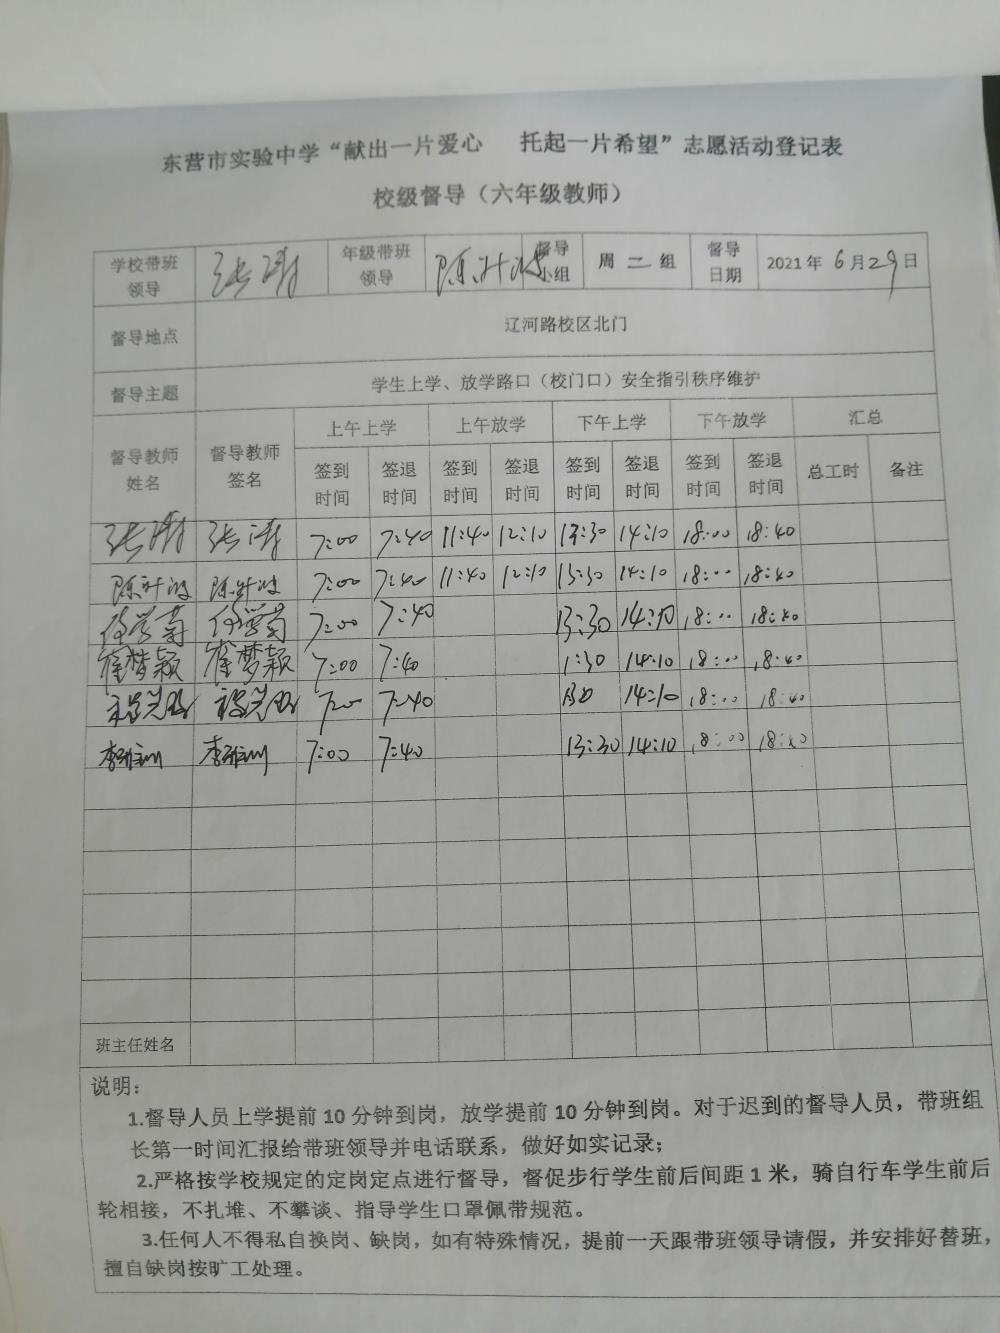 东营市实验中学“献出一片爱心 托起一片希望”志愿活动登记表
校级督导（六年级教师）
学校带班领导 张涛 年级带班领导 督导小组 周 二 组 督导日期 2021年6月29日
督导地点 辽河路校区北门
督导主题 学生上学、放学路口（校门口）安全指引秩序维护
督导教师姓名 督导教师签名 上午上学 上午放学 下午上学 下午放学 汇总
签到时间 签退时间 签到时间 签退时间 签到时间 签退时间 签到时间 签退时间 总工时 备注
张涛 张涛 7:00 7:40 11:40 12:10 13:30 14:10 18:00 18:40
7:00 7:40 11:40 12:10 13:30 14:10 18:00 18:40
7:00 7:40 13:30 14:10 18:00 18:40
崔梦颖 崔梦颖 7:00 7:40 1:30 14:10 18:00 18:40
7:40 14:10 18:00 18:40
7:00 7:40 13:30 14:10 18:00 18:40
班主任姓名
说明：
1.督导人员上学提前10分钟到岗，放学提前10分钟到岗。对于迟到的督导人员，带班组
长第一时间汇报给带班领导并电话联系，做好如实记录；
2.严格按学校规定的定岗定点进行督导，督促步行学生前后间距1米，骑自行车学生前后
轮相接，不扎堆、不攀谈、指导学生口罩佩带规范。
3.任何人不得私自换岗、缺岗，如有特殊情况，提前一天跟带班领导请假，并安排好替班，
擅自缺岗按旷工处理。